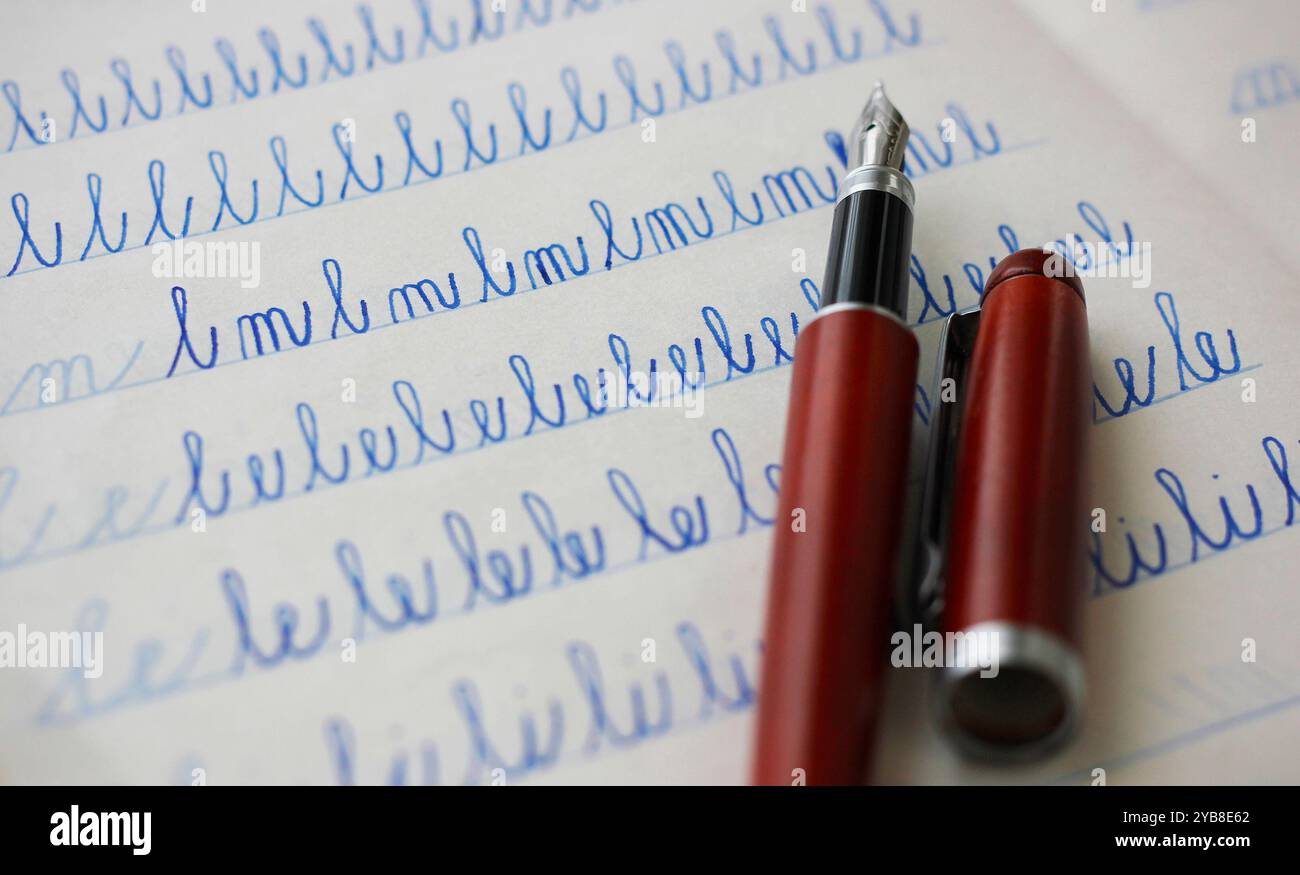 l l l l l l l l l l l
l l l l l l l l l l l l l l l l
m l m l m l m l m l m l m l
l e l e l e l e l e l e l l e l e l
le le le le le le le le
li li li li li li l
alamy
Image ID: 2YB8E62
www.alamy.com